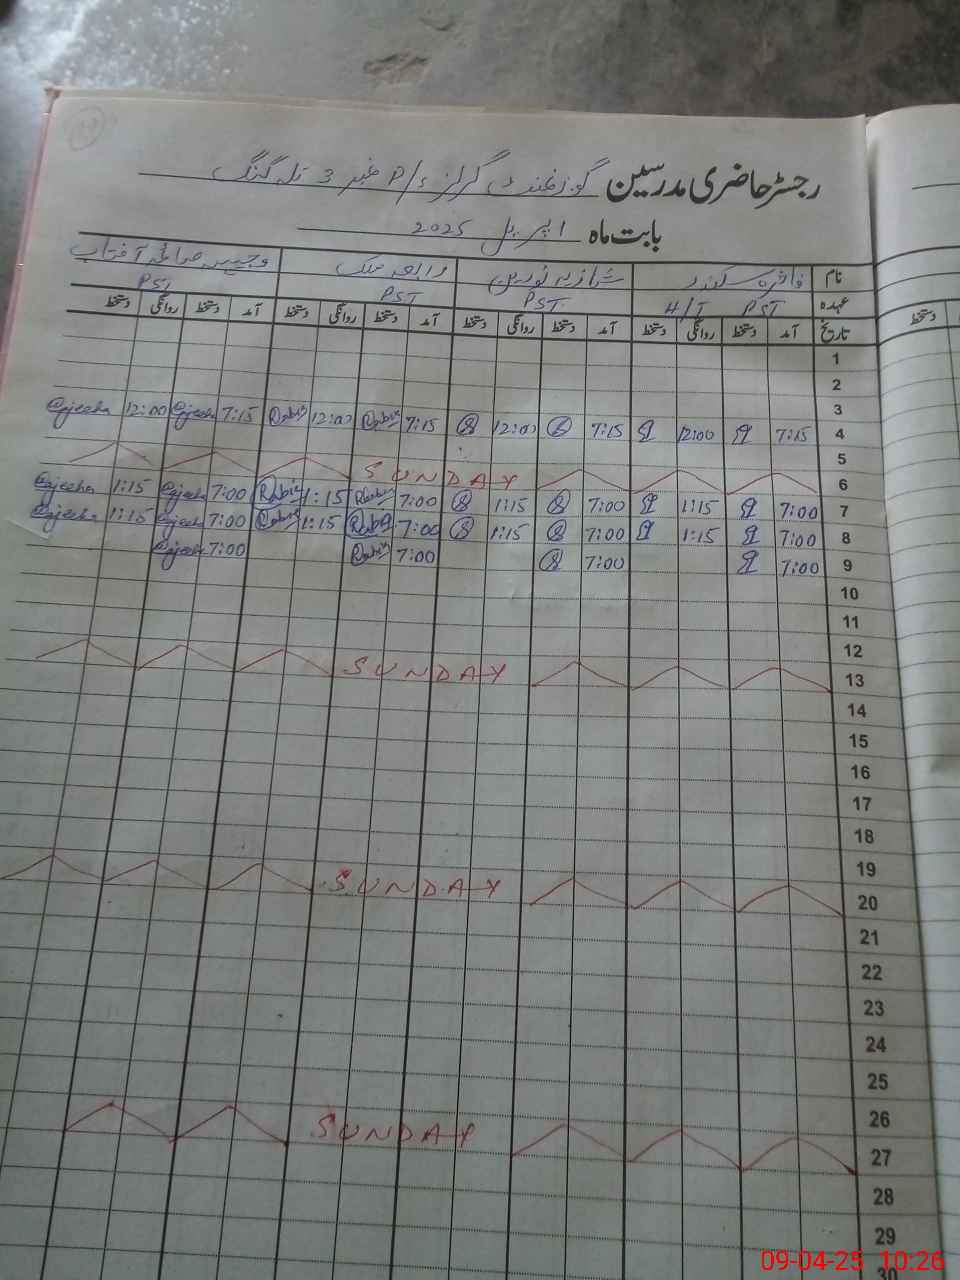 رجسٹر حاضری مدرسین گورنمنٹ گرلز P/S نمبر 3 تلہ گنگ
بابت ماہ اپریل 2025
نام فاخرہ سکندر شازیہ نورین رابعہ ملک وجیہہ آفتاب
عہدہ PST H/T PST PST PST
تاریخ آمد دستخط روانگی دستخط آمد دستخط روانگی دستخط آمد دستخط روانگی دستخط آمد دستخط روانگی دستخط
1
2
3
@ajeeha 12:00 @ajeeha 7:15 Rabia 12:00 Rabia 7:15 12:00 7:15 12:00 7:15 4
5
SUNDAY 6
@ajeeha 1:15 @ajeeha 7:00 Rabia 1:15 Rabia 7:00 1:15 7:00 1:15 7:00 7
@ajeeha 1:15 @ajeeha 7:00 Rabia 1:15 Rabia 7:00 1:15 7:00 1:15 7:00 8
@ajeeha 7:00 Rabia 7:00 7:00 7:00 9
10
11
12
SUNDAY 13
14
15
16
17
18
19
SUNDAY 20
21
22
23
24
25
26
SUNDAY 27
28
29
30
دستخط
09-04-25 10:26